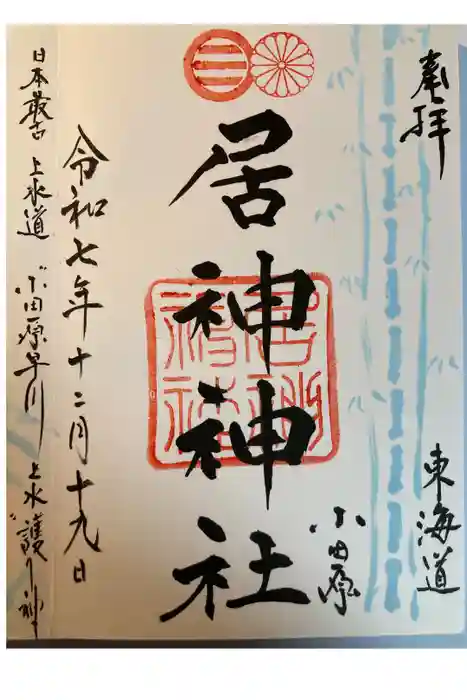 奉拝
東海道
小田原
居神神社
居神神社
令和七年十二月十九日
日本最古 上水道 小田原早川上水 護り神